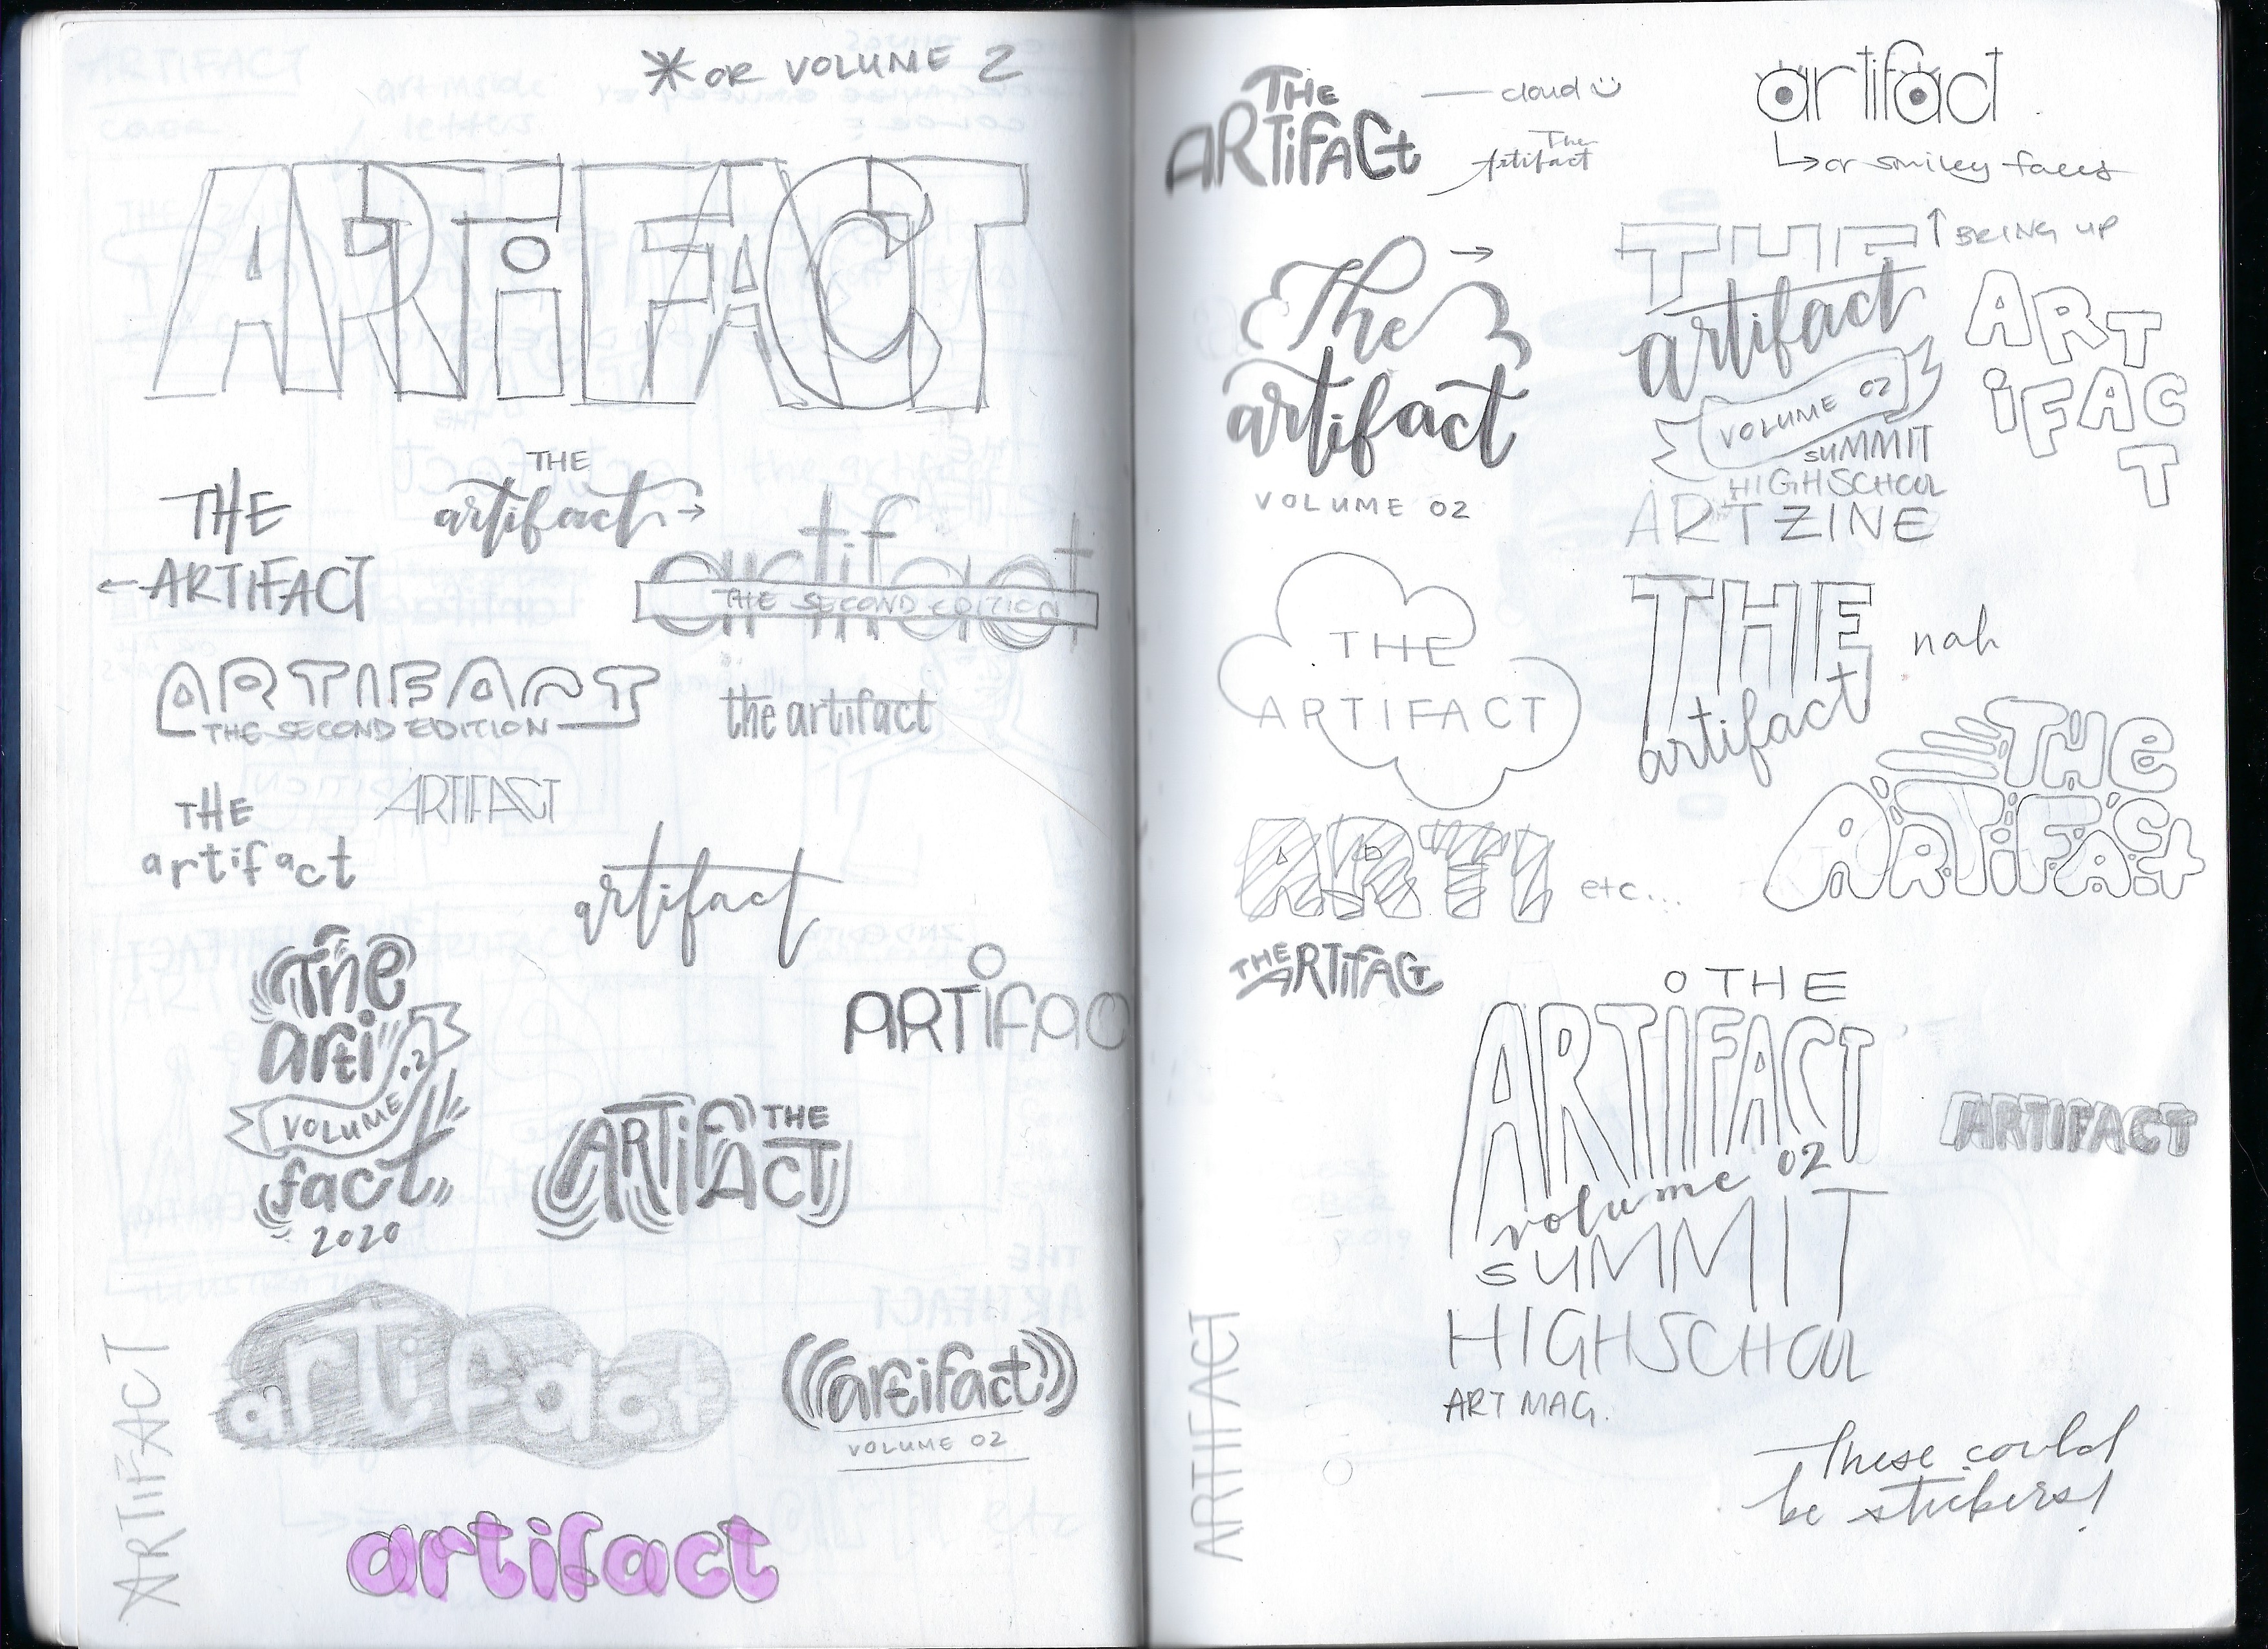 *OR VOLUME 2
ARTiFACT
THE
ARTIFACT
THE
artifact
artifact
THE SECOND EDITION
ARTIFACT
THE SECOND EDITION
the artifact
THE
artifact
ARTIFACT
artifact
The
arti
VOLUME .2
fact
2020
ARTiFAC
THE
ARTiFACT
artifact
artifact
VOLUME 02
ARTIFACT
artifact
THe
ARTiFACt
cloud
The
Artifact
artifact
or smiley faces
The
artifact
VOLUME 02
THE
BRING UP
artifact
VOLUME 02
SUMMIT
HIGHSCHOOL
ART ZINE
ART
iFAC
T
THE
ARTIFACT
THE
artifact
nah
THe
ARTiFACt
ARTI
etc...
THE ARTifACT
THE
ARTiFACT
volume 02
SUMMIT
HIGHSCHOOL
ART MAG.
ARTIFACT
ARTIFACT
these could
be stickers!